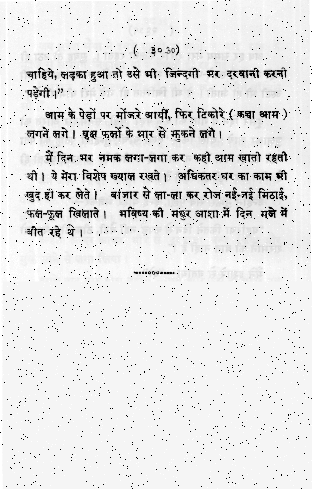 ( ३०३० )
चाहिये, लड़का हुआ तो उसे भी जिन्दगी भर दरबानी करनी
पड़ेगी।”
आम के पेड़ों पर माँजरे आयीं, फिर टिकोरे ( कच्चा आम )
लगने लगे। वृक्ष फलों के भार से झुकने लगे।
मैं दिन भर नमक लगा-लगा कर कच्चे आम खाती रहती
थी। ये मेरा विशेष ख्याल रखते। अधिकतर घर का काम भी
खुद ही कर लेते। बाजार से ला-ला कर रोज नई-नई मिठाई,
फल-फूल खिलाते। भविष्य की मधुर आशा में दिन मजे में
बीत रहे थे।